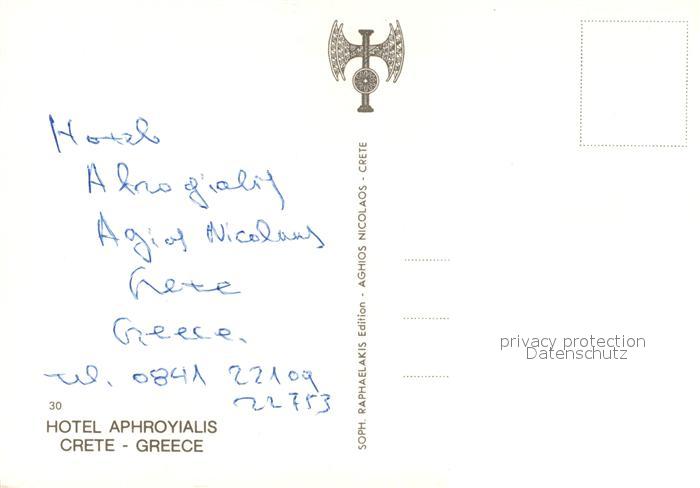 Hotel
Afrogialis
Agios Nicolaus
Crete
Greece.
tel. 0841 22109
22753
30
HOTEL APHROYIALIS
CRETE - GREECE
SOPH. RAPHAELAKIS Edition - AGHIOS NICOLAOS - CRETE
privacy protection
Datenschutz